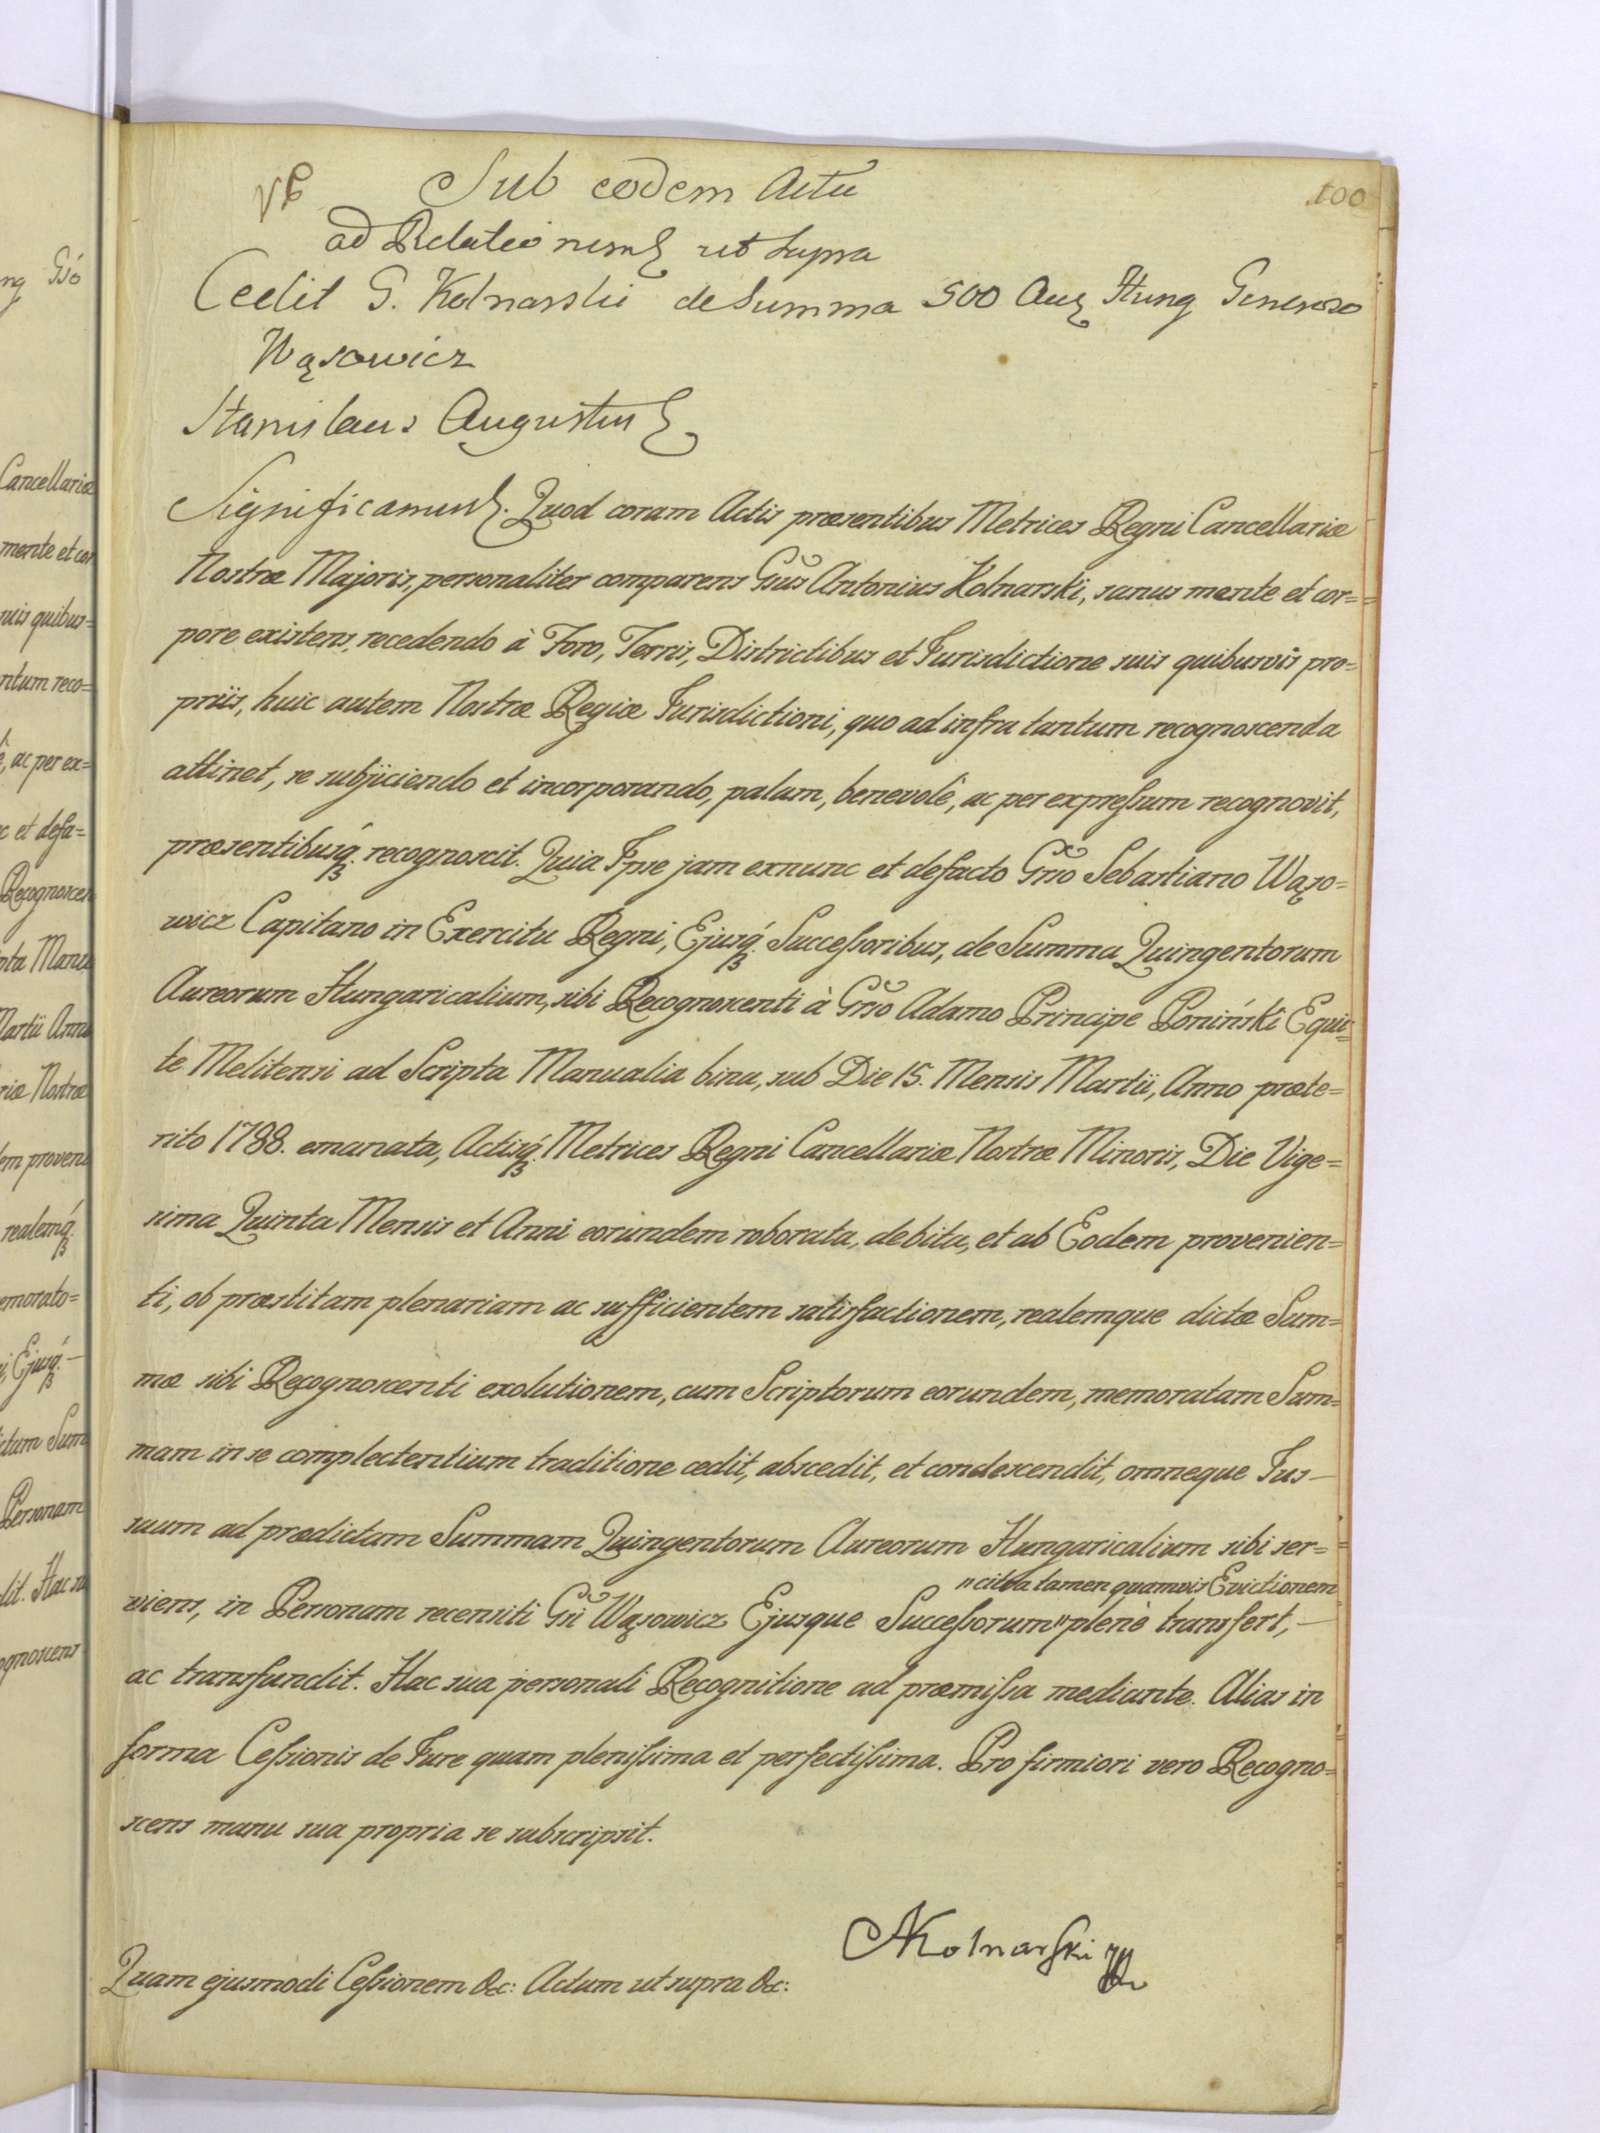 100
Sub eodem Actu
ad Relationem ut supra
Cedit G. Kolnarski de Summa 500 Aur Hung Generoso
Wąsowicz
Stanislaus Augustus
Significamus. Quod coram Actis præsentibus Metrices Regni Cancellariæ
Nostræ Majoris, personaliter comparens Gsus Antonius Kolnarski, sanus mente et cor=
pore existens, recedendo à Foro, Terris, Districtibus et Jurisdictione suis quibusvis pro=
priis, huic autem Nostræ Regiæ Jurisdictioni, quo ad infra tantum recognoscenda
attinet, se subjiciendo et incorporando, palam, benevolè, ac per expressum recognovit,
præsentibusq́ꝫ recognoscit. Quia Ipse jam exnunc et defacto Grso Sebastiano Wąso=
wicz Capitano in Exercitu Regni, Ejusq́ꝫ Successoribus, de Summa Quingentorum
Aureorum Hungaricalium, sibi Recognoscenti à Grso Adamo Principe Poniński Equi=
te Melitensi ad Scripta Manualia bina, sub Die 15. Mensis Martii, Anno præte=
rito 1788. emanata, Actisq́ꝫ Metrices Regni Cancellariæ Nostræ Minoris, Die Vige=
sima Quinta Mensis et Anni eorundem roborata, debita, et ab Eodem provenien=
ti, ob præstitam plenariam ac sufficientem satisfactionem, realemque dictæ Sum=
mæ sibi Recognoscenti exolutionem, cum Scriptorum eorundem, memoratam Sum=
mam in se complectentium traditione cedit, abscedit, et condescendit, omneque Jus
suum ad prædictam Summam Quingentorum Aureorum Hungaricalium sibi ser=
"citra tamen quamvis Evictionem
viens, in Personam recensiti Gsi Wąsowicz Ejusque Successorum " plenè transfert,
ac transfundit. Hac sua personali Recognitione ad præmissa mediante. Alias in
forma Cessionis de Jure quam plenissima et perfectissima. Pro firmiori vero Recogno=
scens manu sua propria se subscripsit.
AKolnarski
Quam ejusmodi Cessionem &c: Actum ut supra &c: